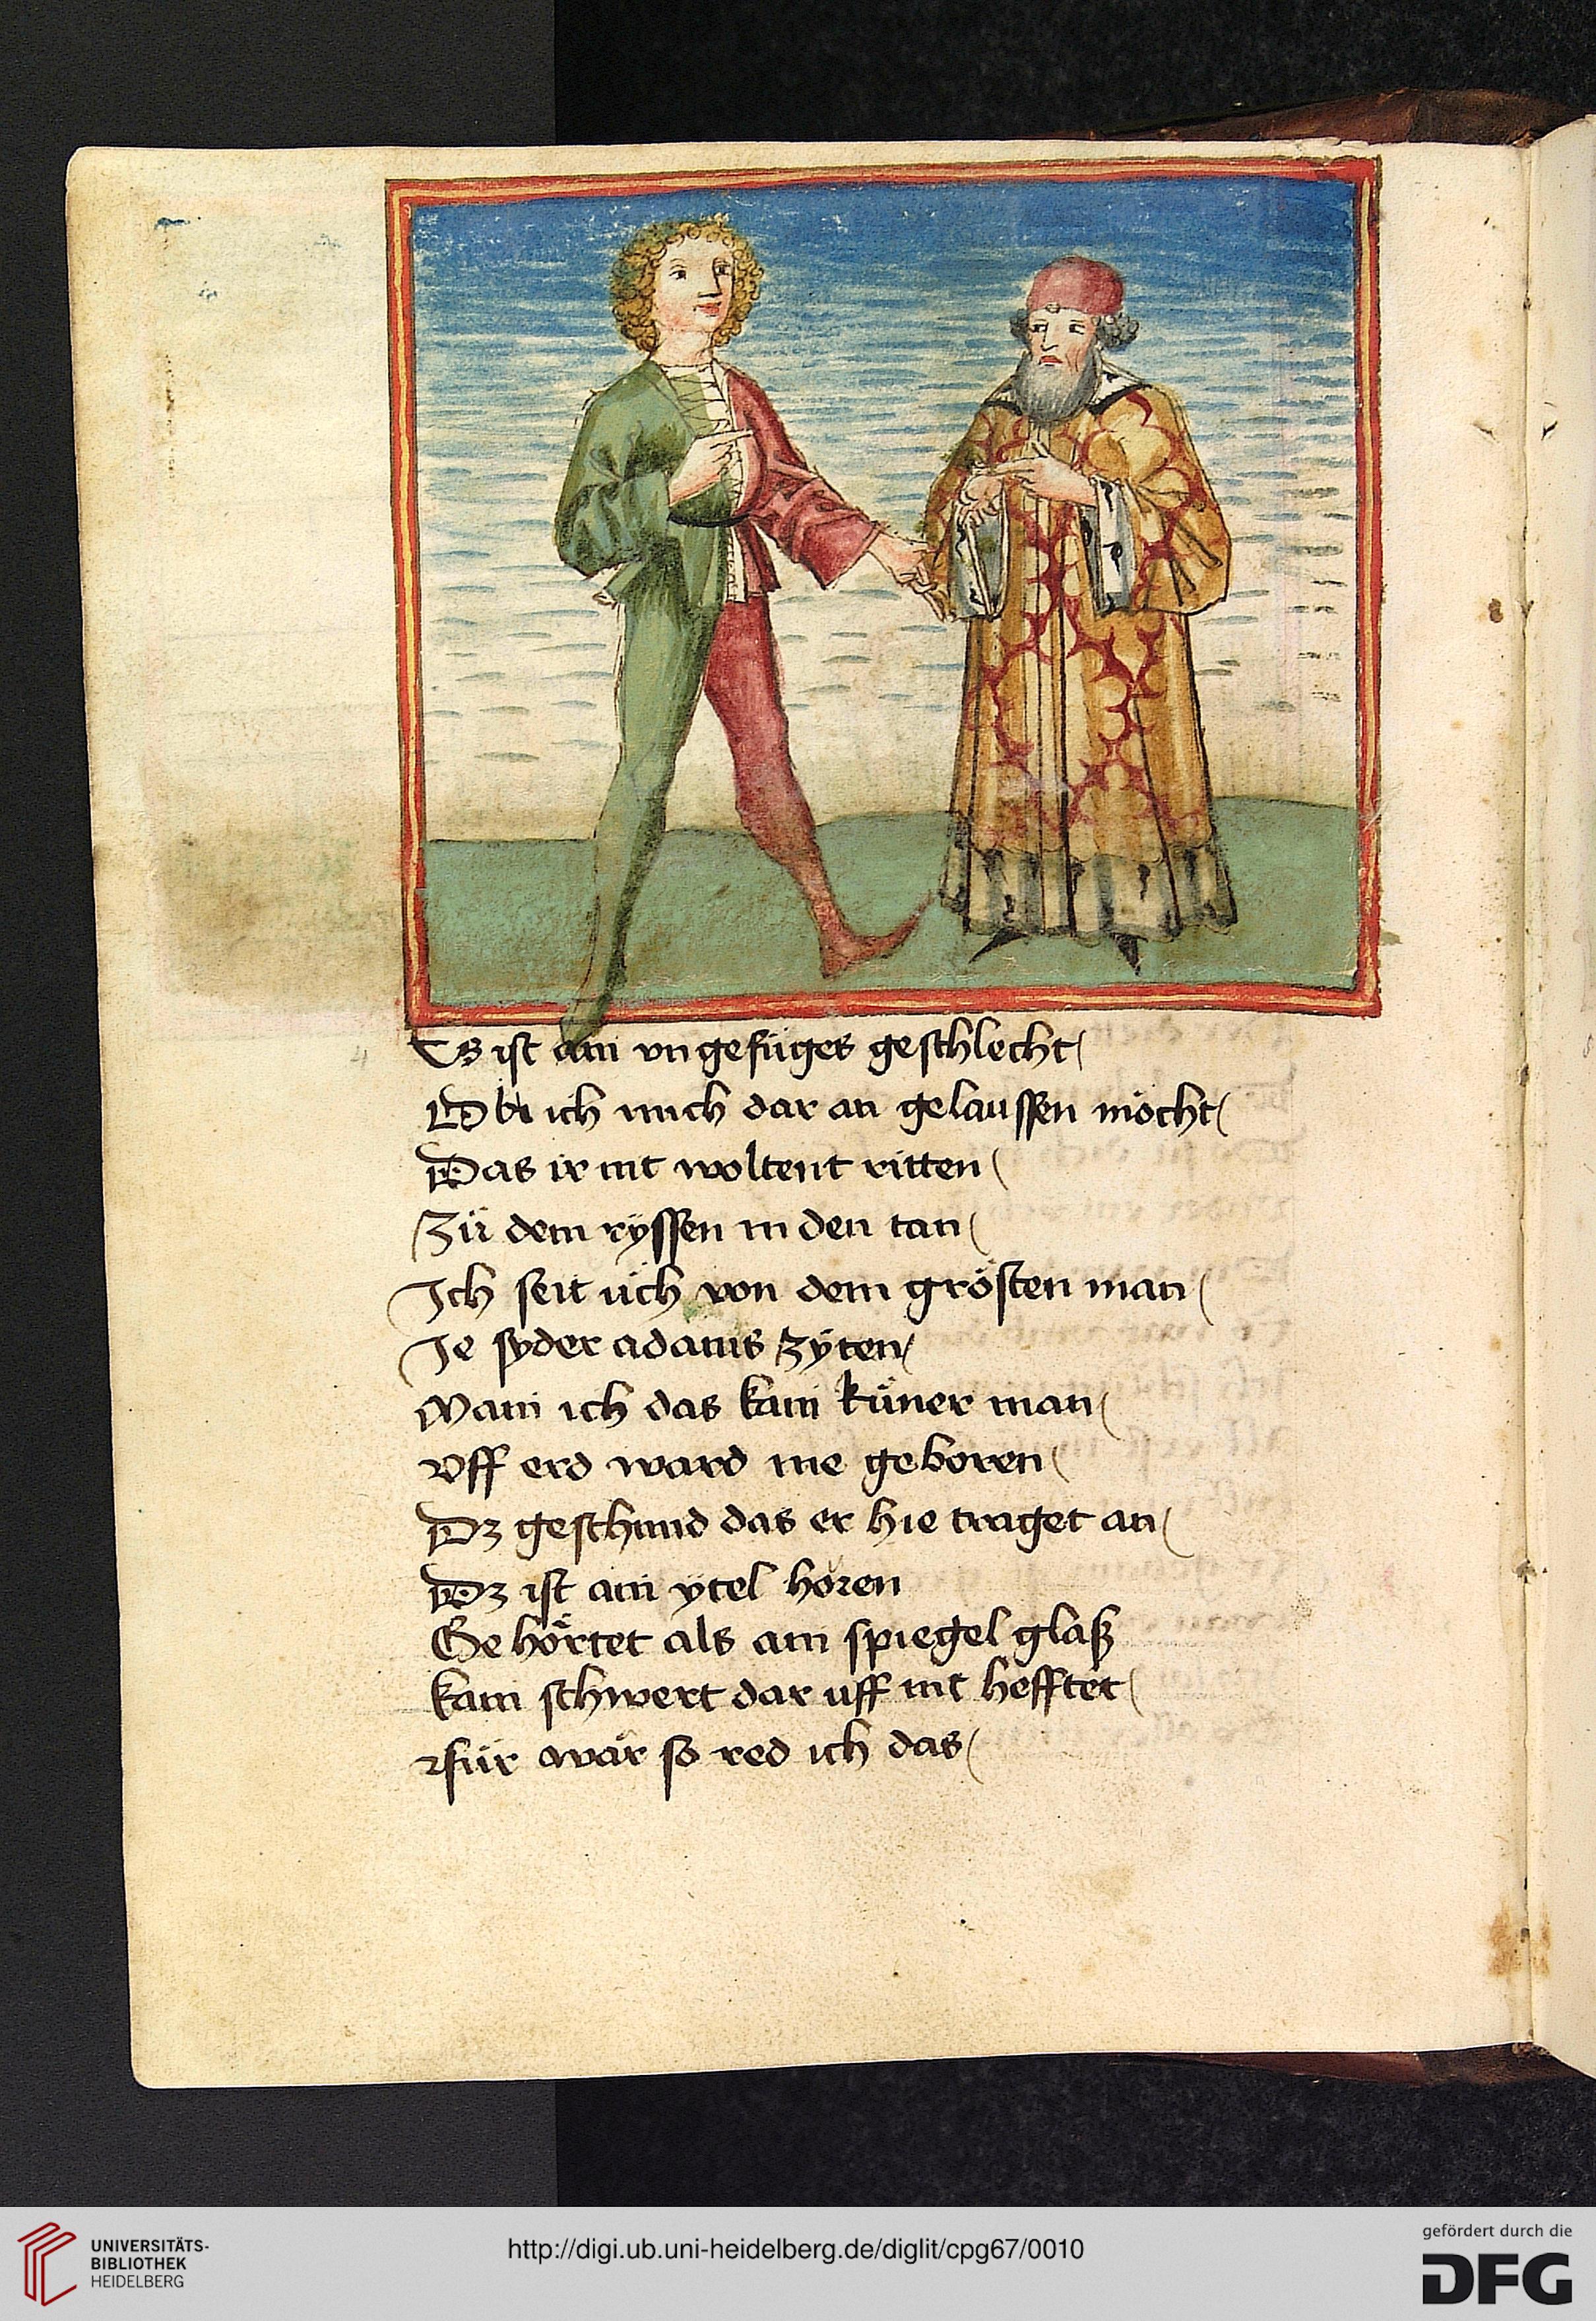 Es ist ain vngefüges geschlecht
Ob ich mich dar an gelaussen möcht
Das ir nit woltent ritten
Zü dem ryssen in den tan
Ich seit üch von dem grösten man
Je syder adams zÿten
Wann ich das kain küner man
Vff erd ward nie geboren
Dz geschmid das er hie traget an
Dz ist ain ytel horen
Gehörtet als ain spiegel glaß
kain schwert dar uff nit hefftet
für wär so red ich das
UNIVERSITÄTS-
BIBLIOTHEK
HEIDELBERG
http://digi.ub.uni-heidelberg.de/diglit/cpg67/0010
gefördert durch die
DFG